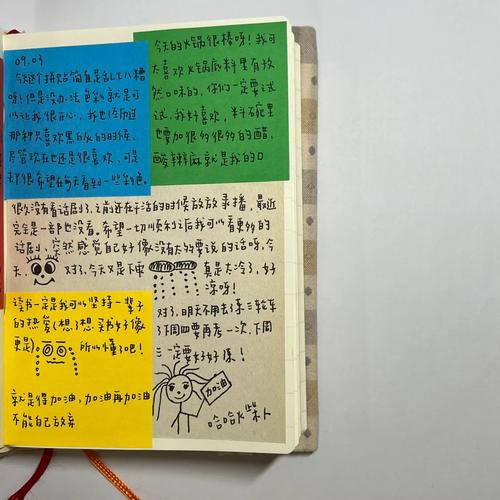 09.03
今天这个拼贴简直是乱七八糟
呀！但是没办法色彩就是可
以让我很开心，我也经历过
那种只喜欢黑白灰的时候，
尽管现在也还是很喜欢，可是
也很希望在每天看到一些彩色。
今天的火锅很棒呀！我可
太喜欢火锅底料里有孜
然口味的，你们一定要试
试，我好喜欢，料碗里
也要加很多很多的醋，
酸辣麻就是我的口
很久没有看话剧了，之前还在干活的时候放放录播，最近
完全是一部也没看。希望一切顺利之后我可以看更多的
话剧，突然感觉自己好像没有太多要说的话呀，今
天，
对了，今天又是下雨
真是太冷了，好
凉呀！
读书一定是我可以坚持一辈子
的热爱（想了想买书好像
更是）
所以懂了吧！
就是得加油，加油再加油
不能自己放弃
对了，明天不用去练三轮车
了下周四要再考一次，下周
三一定要好好练！
加油
哈哈火柴人